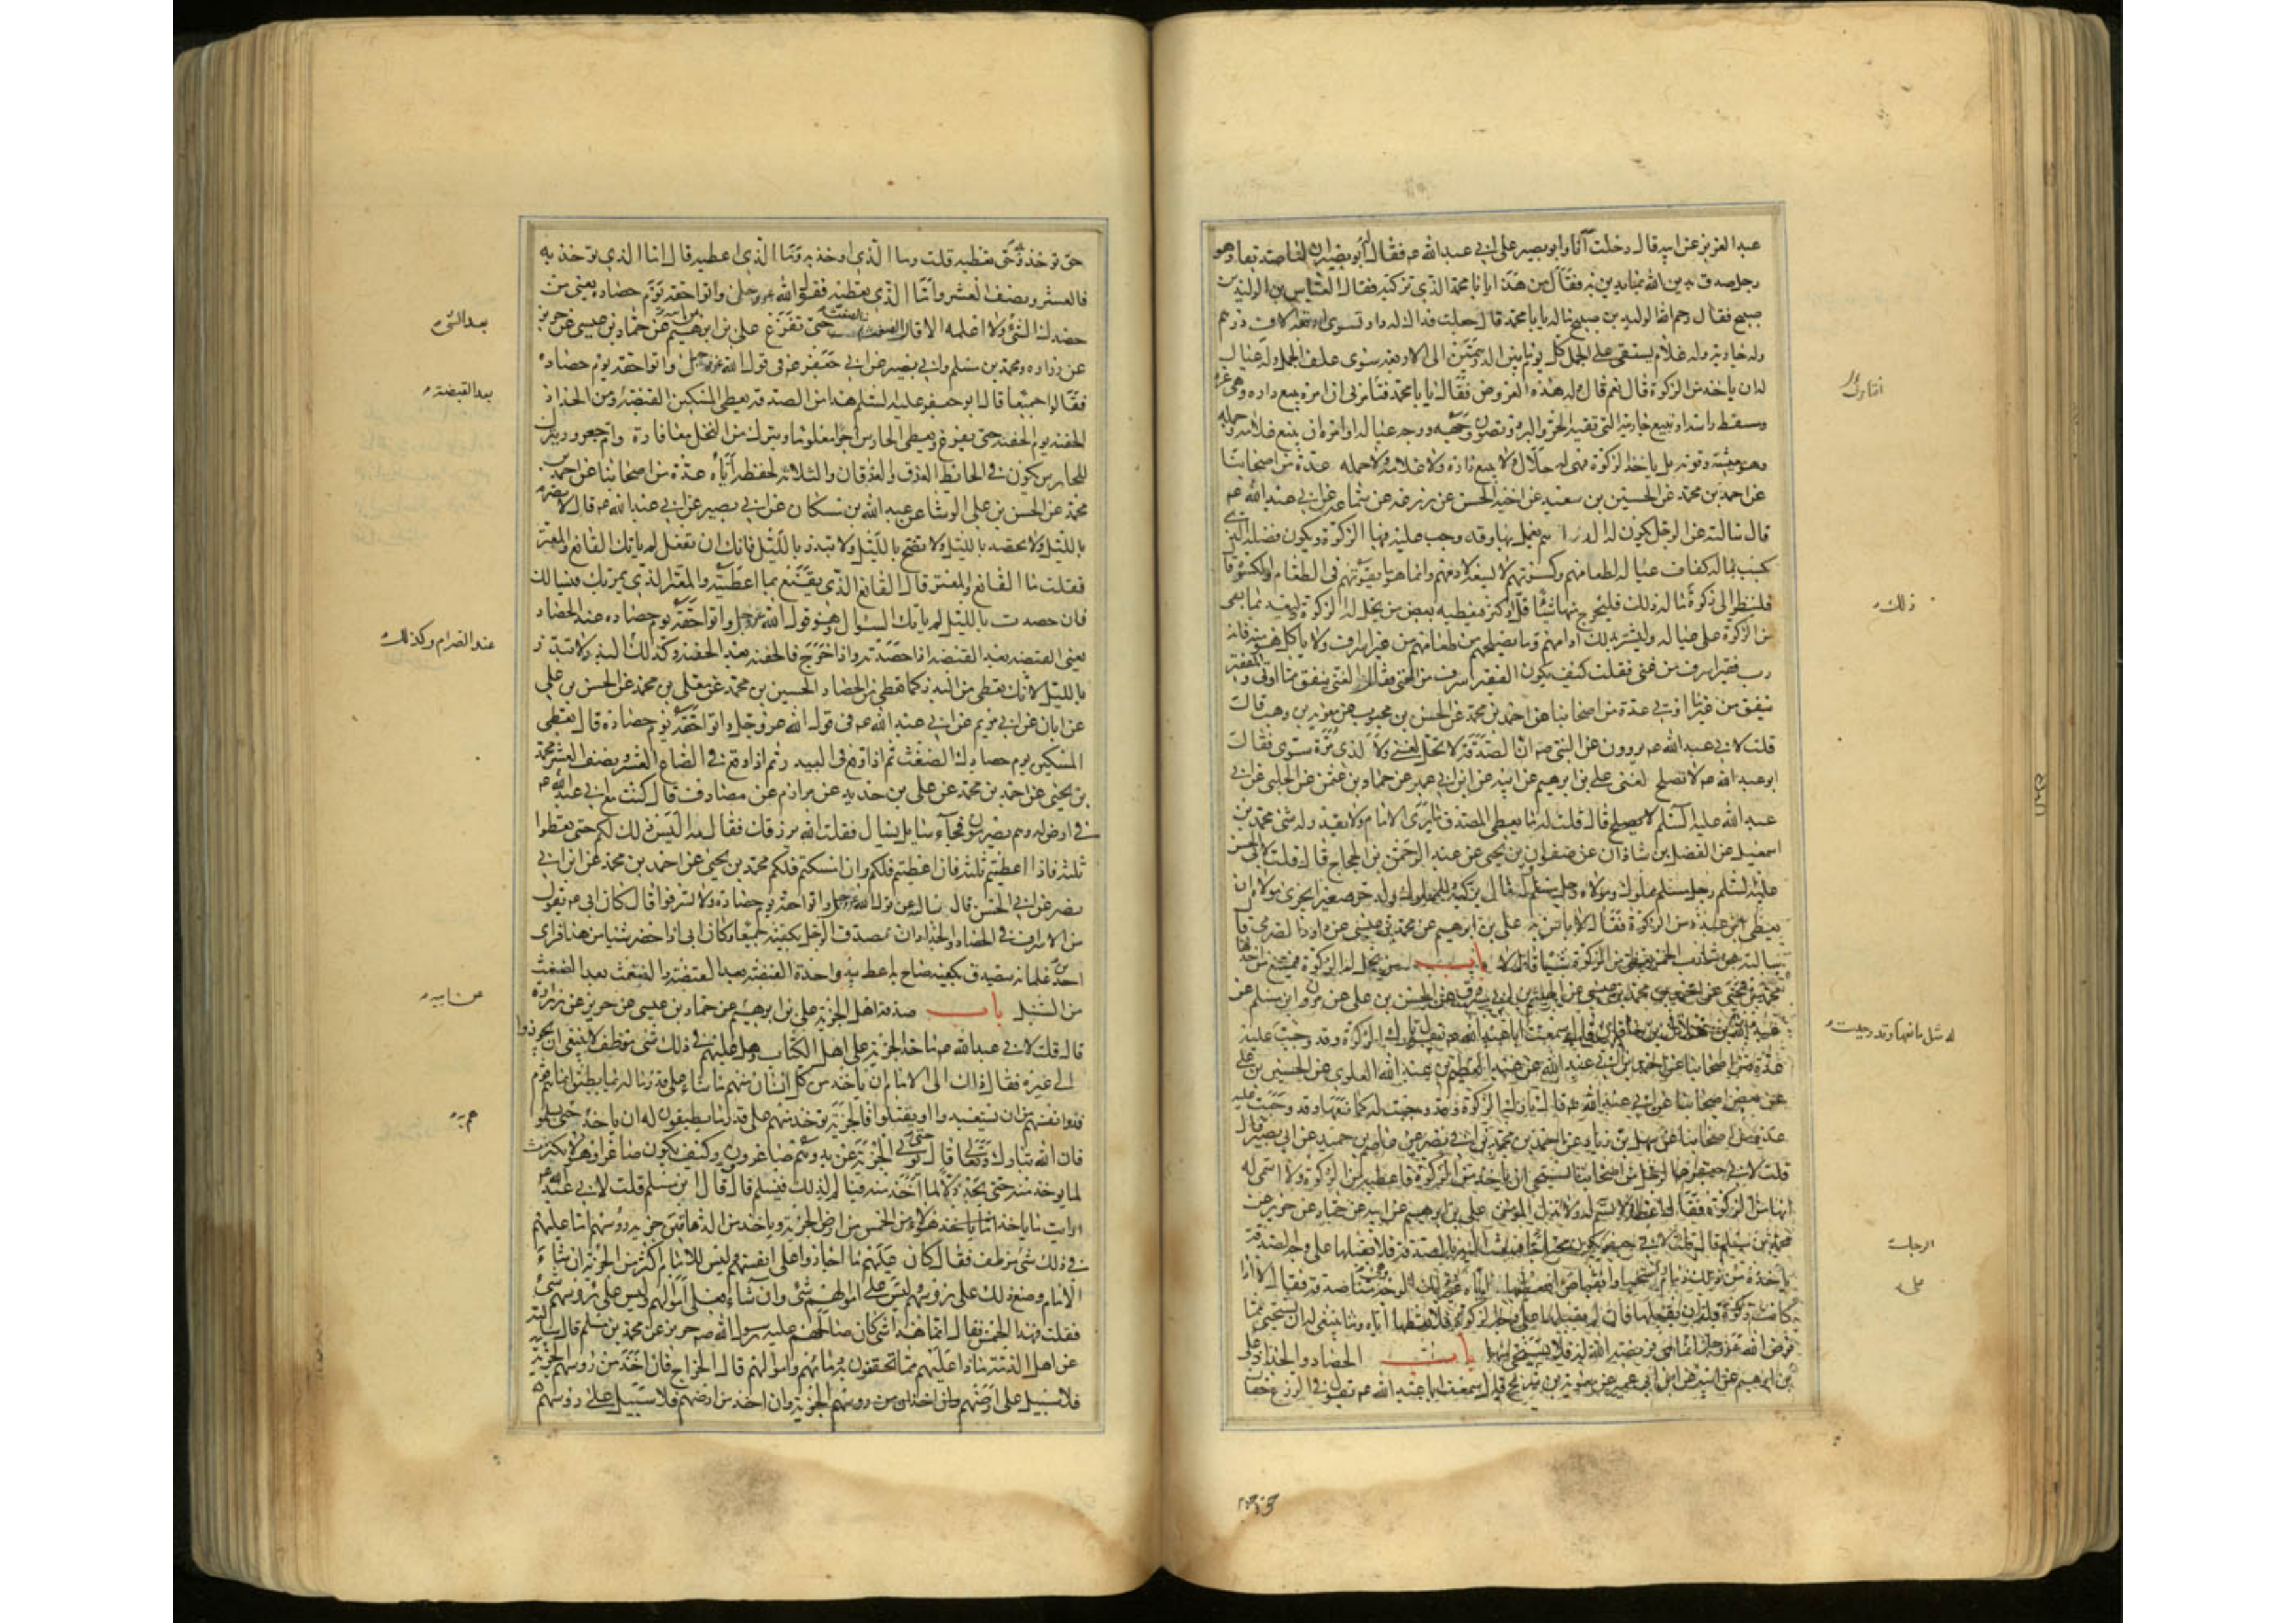 عبد العزيز عن ابيه قال دخلت انا وابو بصير على ابي عبد الله ع فقال له ابو بصير ان لنا صديقا وهو
رجل صدق يدين الله بما ندين به فقال من هذا يا با محمد الذي تزكيه فقال العباس بن الوليد بن
صبيح فقال رحم الله الوليد بن صبيح ماله يا با محمد قال جعلت فداك له دار تسوى اربعة الاف درهم
وله جارية وله غلام يستقى على الجمل كل يوم ما بين الدرهمين الى الاربعة سوى علف الجمل وله عيال
له ان ياخذ من الزكوة قال نعم قال وله هذه العروض فقال يا با محمد فتامرنى ان امره ببيع داره وهى عزه
ومسقط راسه او ببيع جاريته التى تقيه الحر والبرد وتصون وجهه ووجه عياله او امره ان يبيع غلامه وجمله
وهو معيشته وقوته بل ياخذ الزكوة فهى له حلال ولا يبيع داره ولا غلامه ولا جمله عدة من اصحابنا
عن احمد بن محمد عن الحسين بن سعيد عن اخيه الحسن عن زرعة عن سماعة عن ابي عبد الله ع
قال سالته عن الرجل يكون له الدراهم يعمل بها وقد وجب عليه فيها الزكوة ويكون فضله الذى
كسب بماله كفاف عياله لطعامهم وكسوتهم لا يسعه لادمهم وانما هو ما يقوتهم فى الطعام والكسوة قال
فلينظر الى زكوة ماله ذلك فليخرج منها شيئا قل او كثر فيعطيه بعض من يحل له الزكوة وليعد بما بقى
من الزكوة على عياله وليشتر بذلك ادامهم وما يصلحهم من طعامهم من غير اسراف ولا ياكل هو منه فانه
رب فقير اسرف من غنى فقلت كيف يكون الفقير اسرف من الغنى فقال ان الغنى ينفق مما اوتى والفقير
ينفق من غير ما اوتى عدة من اصحابنا عن احمد بن محمد عن الحسن بن محبوب عن معوية بن وهب قال
قلت لابي عبد الله ع يروون عن النبى ص ان الصدقة لا تحل لغنى ولا لذى مرة سوى فقال
ابو عبد الله ع لا تصلح لغنى على بن ابرهيم عن ابيه عن ابن ابي عمير عن حماد بن عثمن عن الحلبى عن ابي
عبد الله عليه السلم قال قلت له ما يعطى المصدق قال ما يرى الامام ولا يقدر له شى محمد بن
اسمعيل عن الفضل بن شاذان عن صفوان بن يحيى عن عبد الرحمن بن الحجاج قال قلت لابى الحسن
عليه السلم رجل مسلم مملوك ومولاه رجل مسلم وله مال يزكيه وللمملوك ولد حر صغير ايجزى مولاه ان
يعطى ابن عبده من الزكوة فقال لا باس به على بن ابرهيم عن محمد بن عيسى عن داود الصرمى قال
سالته عن شارب الخمر يعطى من الزكوة شيئا قال لا باب من يحل له الزكوة فيمتنع من اخذها
محمد بن يحيى عن احمد بن محمد بن عيسى عن الحسن بن على عن مروان بن مسلم عن
عبد الله بن هلال بن خاقان قال سمعت ابا عبد الله ع يقول تارك الزكوة وقد وجبت عليه
عدة من اصحابنا عن احمد بن ابي عبد الله عن عبد العظيم بن عبد الله العلوى عن الحسين بن على
عن بعض اصحابنا عن ابي عبد الله ع قال تارك الزكوة وقد وجبت له كمانعها وقد وجبت عليه
عدة من اصحابنا عن سهل بن زياد عن احمد بن محمد بن ابي نصر عن عاصم بن حميد عن ابي بصير قال
قلت لابي جعفر ع الرجل من اصحابنا يستحى ان ياخذ من الزكوة فاعطيه من الزكوة ولا اسمى له
انها من الزكوة فقال اعطه ولا تسم له ولا تذل المومن على بن ابرهيم عن ابيه عن حماد عن حريز عن
محمد بن مسلم قال قلت لابي جعفر ع يكون محتاجا فيبعث اليه بالصدقة فلا يقبلها على وجه الصدقة
ياخذه من ذلك ذمام واستحياء وانقباض فيعطيها اياه على غير ذلك الوجه وهى منا صدقة فقال لا اذا
كانت زكوة فله ان يقبلها فان لم يقبلها على وجه الزكوة فلا تعطها اياه وما ينبغى له ان يستحيى مما
فرض الله عز وجل انما هى فريضة الله له فلا يستحيى منها باب الحصاد والجداد على
بن ابرهيم عن ابيه عن ابن ابي عمير عن معوية بن شريح قال سمعت ابا عبد الله ع يقول فى الزرع حقان
حق توخذ
انما ولك
ذلك
له مثل مانعها وقد وجبت
الرجل
على
حق توخذ وحق تعطيه قلت وما الذى اوخذ به وما الذى اعطيه قال اما الذى توخذ به
فالعشر ونصف العشر واما الذى تعطيه فقول الله عز وجل واتوا حقه يوم حصاده يعنى من
حصدك الشئ ولا اعلمه الا قال الضغث حتى تفرغ على بن ابرهيم عن ابيه عن حماد بن عيسى عن حريز
عن زرارة ومحمد بن مسلم وابي بصير عن ابي جعفر ع فى قول الله عز وجل واتوا حقه يوم حصاده
فقالوا جميعا قال ابو جعفر عليه السلم هذا من الصدقة يعطى المسكين القبضة ومن الجداد
الحفنة بعد الحفنة حتى يفرغ ويعطى الحارس اجرا معلوما ويترك من النخل معافارة وام جعرور ويترك
للحارس يكون فى الحائط العذق والعذقان والثلاثة لحفظه اياه عدة من اصحابنا عن احمد بن
محمد عن الحسن بن على الوشا عن عبد الله بن مسكان عن ابي بصير عن ابي عبد الله ع قال لا تصرم
بالليل ولا تحصد بالليل ولا تضح بالليل ولا تبذر بالليل فانك ان تفعل لم ياتك القانع والمعتر
فقلت ما القانع والمعتر قال القانع الذى يقنع بما اعطيته والمعتر الذى يمر بك فيسالك
فان حصدت بالليل لم ياتك السوال وهو قول الله عز وجل واتوا حقه يوم حصاده عند الحصاد
يعنى القبضة بعد القبضة اذا حصدته واذا خرج فالحفنة بعد الحفنة وكذلك البذر ولا تبذر
بالليل لانك تعطى من البذر كما تعطى من الحصاد الحسين بن محمد عن معلى بن محمد عن الحسن بن على
عن ابان عن ابي مريم عن ابي عبد الله ع فى قول الله عز وجل واتوا حقه يوم حصاده قال تعطى
المسكين يوم حصادك الضغث ثم اذا وقع فى البيدر ثم اذا وقع فى الصاع العشر ونصف العشر محمد
بن يحيى عن احمد بن محمد عن على بن حديد عن مرازم عن مصادف قال كنت مع ابي عبد الله ع
فى ارض له وهم يصرمون فجاء سايل يسال فقلت الله يرزقك فقال مه ليس ذلك لكم حتى تعطوا
ثلثة فاذا اعطيتم ثلثة فان اعطيتم فلكم وان امسكتم فلكم محمد بن يحيى عن احمد بن محمد عن ابن ابي
نصر عن ابي الحسن قال سالته عن قول الله عز وجل واتوا حقه يوم حصاده ولا تسرفوا قال كان ابي ع يقول
من الاسراف فى الحصاد والجداد ان يصدق الرجل بكفيه جميعا وكان ابي اذا حضر شيئا من هذا فراى
احدا من غلمانه يتصدق بكفيه صاح به اعط بيد واحدة القبضة بعد القبضة والضغث بعد الضغث
من السنبل باب صدقة اهل الجزية على بن ابرهيم عن حماد بن عيسى عن حريز عن زرارة
قال قلت لابي عبد الله ع ما حد الجزية على اهل الكتاب وهل عليهم فى ذلك شى موظف لا ينبغى ان يجوزوا
الى غيره فقال ذاك الى الامام ان ياخذ من كل انسان منهم ما شاء على قدر ماله بما يطيق انما هم قوم
فدوا انفسهم من ان يستعبدوا او يقتلوا فالجزية توخذ منهم على قدر ما يطيقون له ان ياخذ حتى يسلموا
فان الله تبارك وتعالى قال حتى يعطوا الجزية عن يد وهم صاغرون وكيف يكون صاغرا وهو لا يكترث
لما يوخذ منه حتى يجد ذلا لما اخذ منه فيالم لذلك فيسلم قال قال ابن مسلم قلت لابي عبد الله ع
ارايت ما ياخذ هؤلاء من الخمس من ارض الجزية وياخذ من الدهاقين جزية رؤسهم اما عليهم
فى ذلك شئ موظف فقال كان عليهم ما اجازوا على انفسهم وليس للامام اكثر من الجزية ان شاء
الامام وضع ذلك على رؤسهم وليس على اموالهم شئ وان شاء فعلى اموالهم وليس على رؤسهم شئ
فقلت فهذا الخمس فقال انما هذا شئ كان صالحهم عليه رسول الله ص حريز عن محمد بن مسلم قال سالته
عن اهل الذمة ماذا عليهم مما يحقنون به دمائهم واموالهم قال الخراج فان اخذ من رؤسهم الجزية
فلا سبيل على ارضهم وان اخذ من ارضهم فلا سبيل على رؤسهم
بعد الشئ
بعد القبضة
عند الصرام وكذلك
عن ابيه